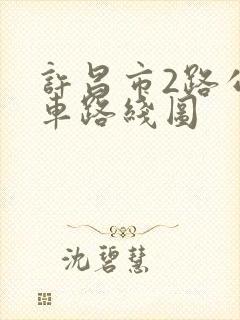 許昌市2路公
車路綫圖
沈碧慧